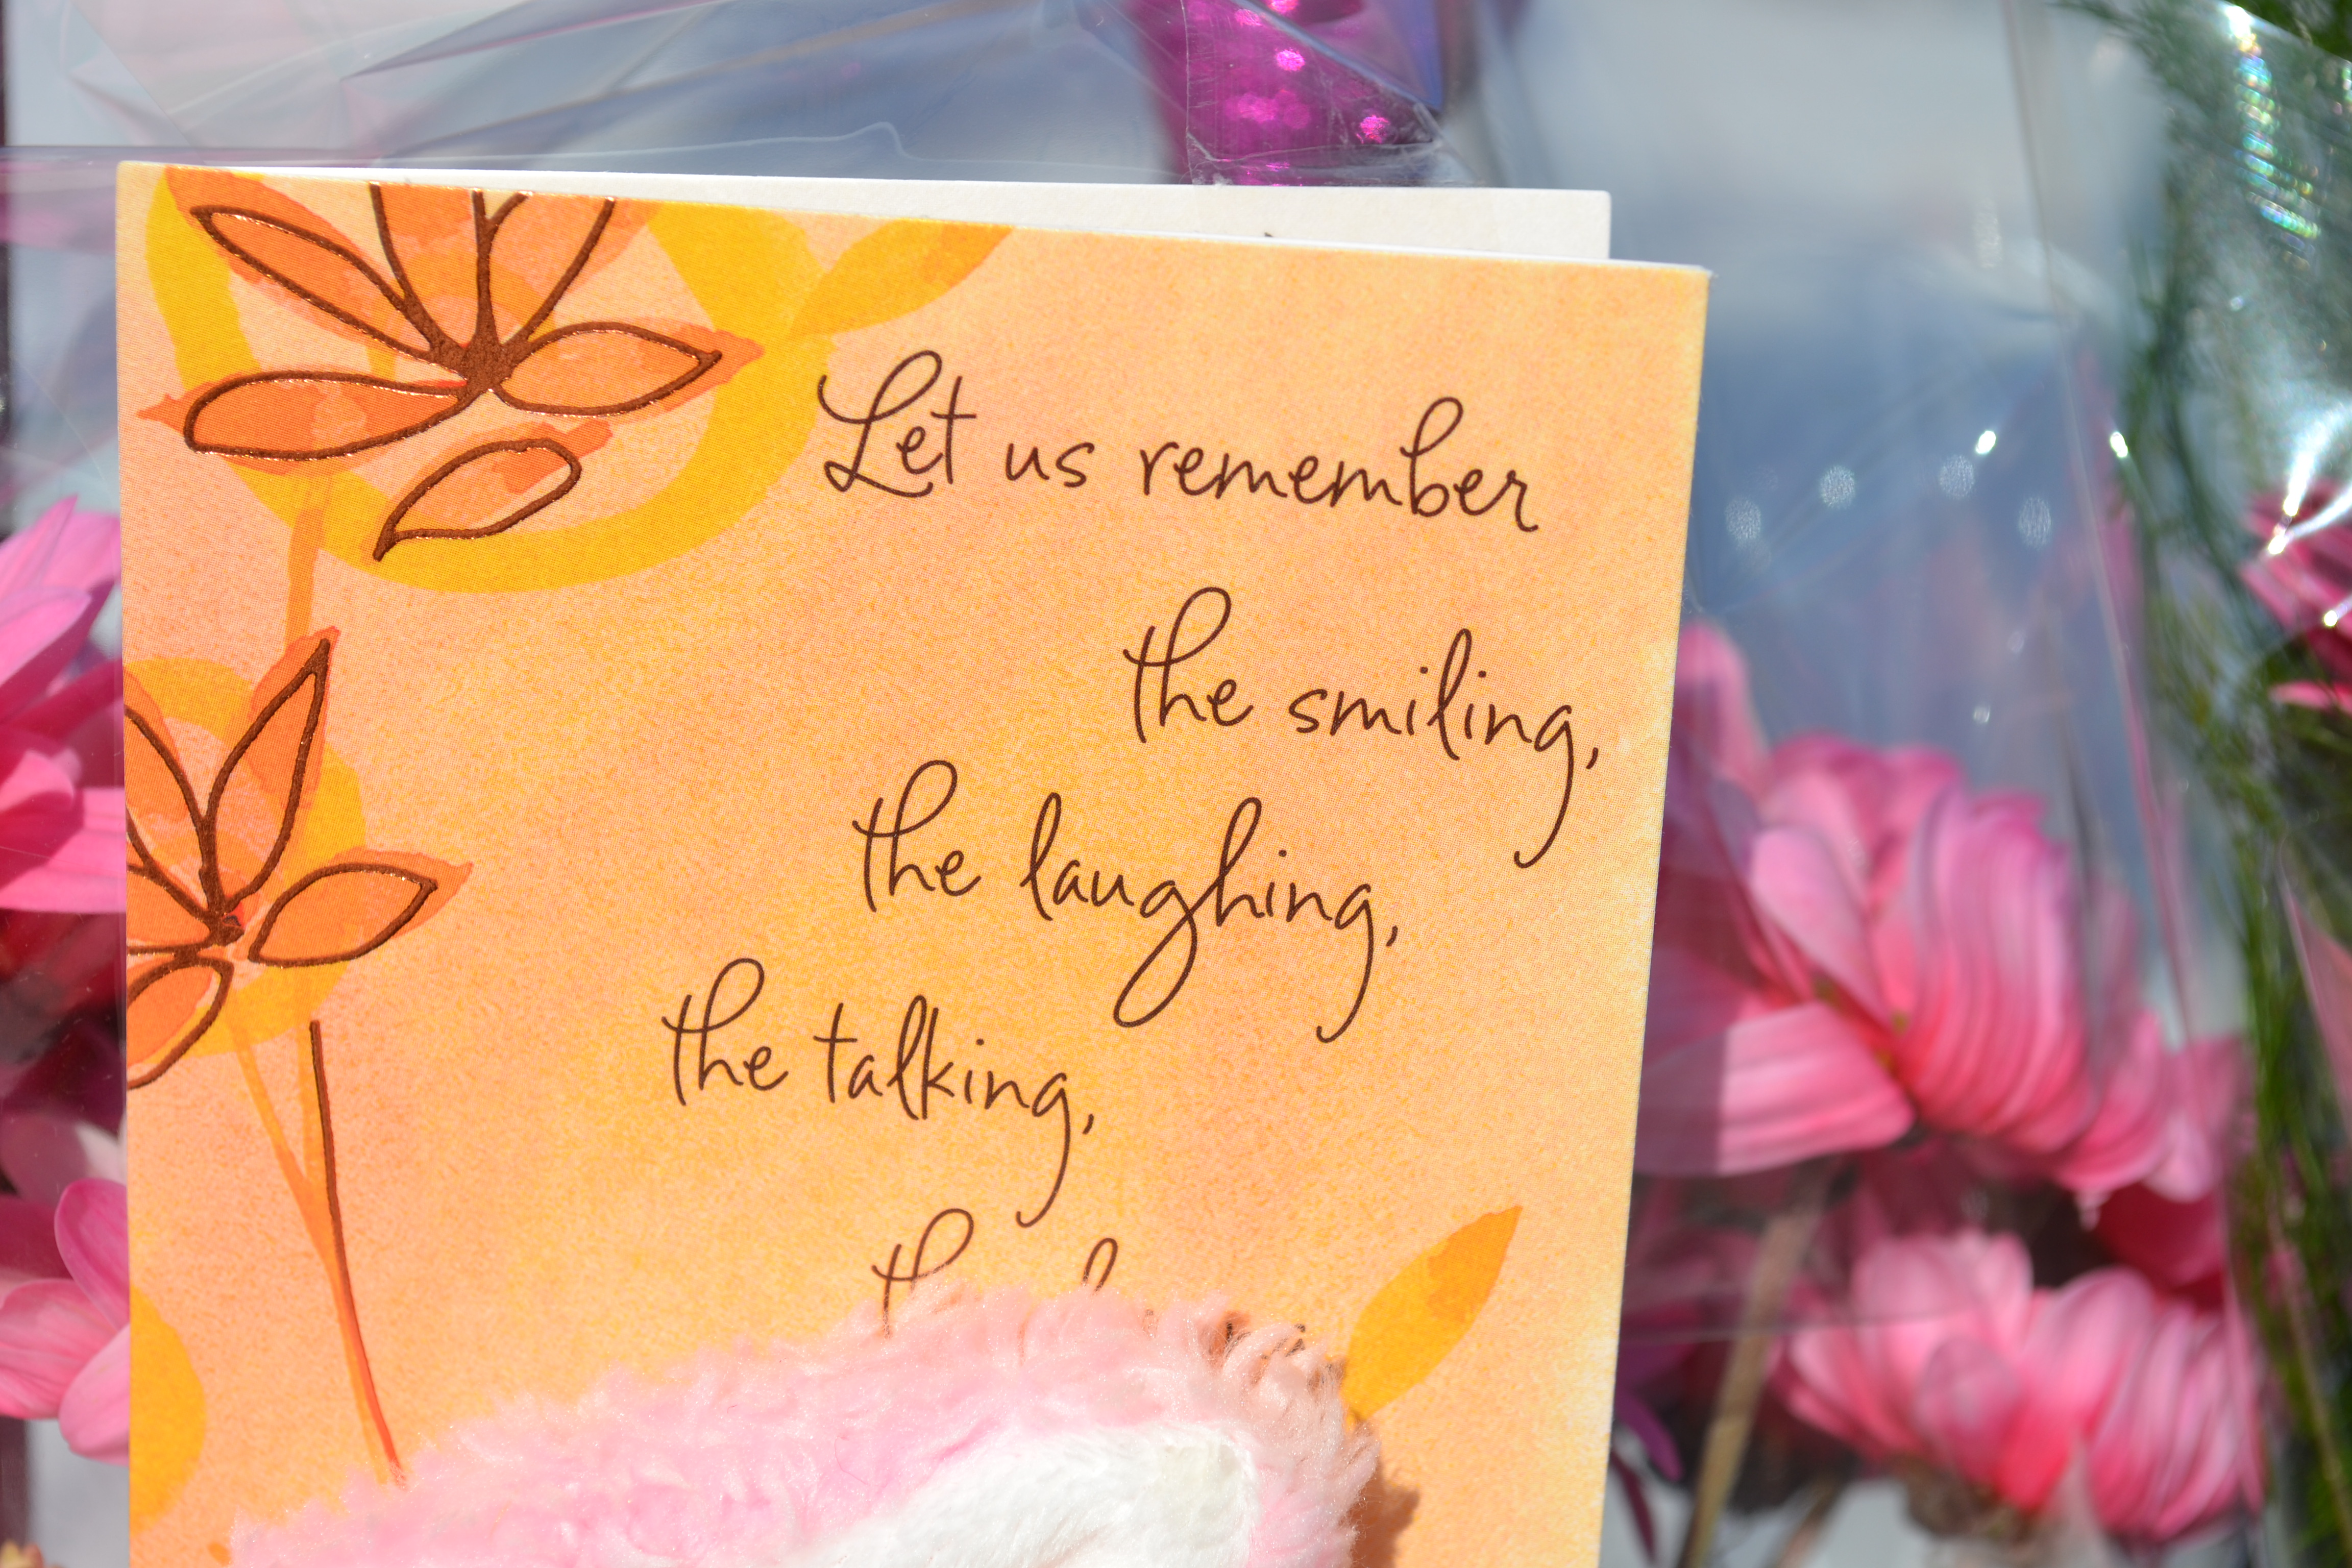 Let us remember
the smiling,
the laughing,
the talking,
the